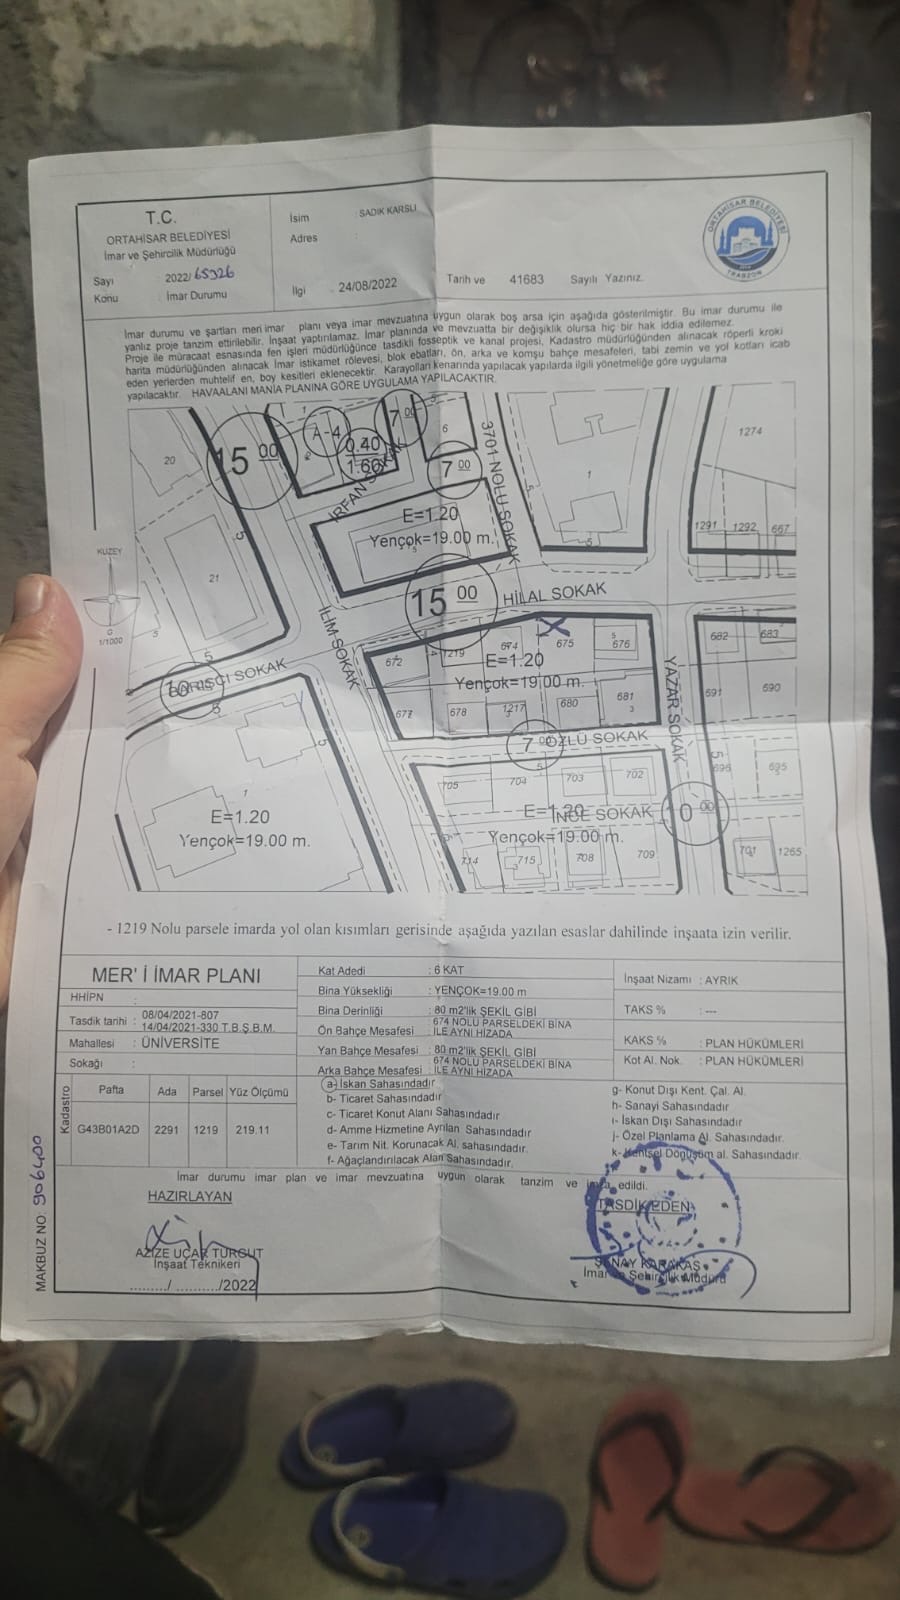 T.C.
ORTAHİSAR BELEDİYESİ
İmar ve Şehircilik Müdürlüğü
Sayı 2022/ 65326
Konu : İmar Durumu
İsim : SADIK KARSLI
Adres :
İlgi : 24/08/2022 Tarih ve 41683 Sayılı Yazınız.
ORTAHİSAR BELEDİYESİ
TRABZON
İmar durumu ve şartları meri imar planı veya imar mevzuatına uygun olarak boş arsa için aşağıda gösterilmiştir. Bu imar durumu ile
yanlız proje tanzim ettirilebilir. İnşaat yaptırılamaz. İmar planında ve mevzuatta bir değişiklik olursa hiç bir hak iddia edilemez.
Proje ile müracaat esnasında fen işleri müdürlüğünce tasdikli fosseptik ve kanal projesi, Kadastro müdürlüğünden alınacak röperli kroki
harita müdürlüğünden alınacak İmar istikamet rölevesi, blok ebatları, ön, arka ve komşu bahçe mesafeleri, tabi zemin ve yol kotları icab
eden yerlerden muhtelif en, boy kesitleri eklenecektir. Karayolları kenarında yapılacak yapılarda ilgili yönetmeliğe göre uygulama
yapılacaktır. HAVAALANI MANİA PLANINA GÖRE UYGULAMA YAPILACAKTIR.
20
15 00
A-4
0.40
1.60
7 00
6
7 00
1274
İRFAN SOKAK
3701 NOLU SOKAK
1
E=1.20
Yençok=19.00 m.
5
1291 1292 667
KUZEY
G
1/1000
21
15 00
HİLAL SOKAK
İLİM SOKAK
BARIŞÇI SOKAK
10
672 1219 674 675 676
E=1.20
Yençok=19.00 m.
677 678 1217 680 681
682 683
691 690
YAZAR SOKAK
7 00
ÖZLÜ SOKAK
705 704 703 702
696 695
1
E=1.20
Yençok=19.00 m.
E=1.20
İNCE SOKAK
10 00
Yençok=19.00 m.
714 715 708 709
701 1265
- 1219 Nolu parsele imarda yol olan kısımları gerisinde aşağıda yazılan esaslar dahilinde inşaata izin verilir.
MER' İ İMAR PLANI
HHİPN :
Tasdik tarihi : 08/04/2021-807
14/04/2021-330 T.B.Ş.B.M.
Mahallesi : ÜNİVERSİTE
Sokağı :
Kat Adedi : 6 KAT
Bina Yüksekliği : YENÇOK=19.00 m
Bina Derinliği : 80 m2'lik ŞEKİL GİBİ
Ön Bahçe Mesafesi : 674 NOLU PARSELDEKİ BİNA İLE AYNI HİZADA
Yan Bahçe Mesafesi : 80 m2'lik ŞEKİL GİBİ
Arka Bahçe Mesafesi : 674 NOLU PARSELDEKİ BİNA İLE AYNI HİZADA
İnşaat Nizamı : AYRIK
TAKS % : ---
KAKS % : PLAN HÜKÜMLERİ
Kot Al. Nok. : PLAN HÜKÜMLERİ
Kadastro
Pafta Ada Parsel Yüz Ölçümü
G43B01A2D 2291 1219 219.11
a- İskan Sahasındadır
b- Ticaret Sahasındadır
c- Ticaret Konut Alanı Sahasındadır
d- Amme Hizmetine Ayrılan Sahasındadır
e- Tarım Nit. Korunacak Al. sahasındadır.
f- Ağaçlandırılacak Alan Sahasındadır.
g- Konut Dışı Kent. Çal. Al.
h- Sanayi Sahasındadır
ı- İskan Dışı Sahasındadır
j- Özel Planlama Al. Sahasındadır.
k- Kentsel Dögüşüm al. Sahasındadır.
İmar durumu imar plan ve imar mevzuatına uygun olarak tanzim ve imza edildi.
HAZIRLAYAN
AZİZE UÇAR TURGUT
İnşaat Teknikeri
........./ ........../2022
TASDİK EDEN
ŞENAY KARAKAŞ
İmar ve Şehircilik Müdürü
MAKBUZ NO: 906400